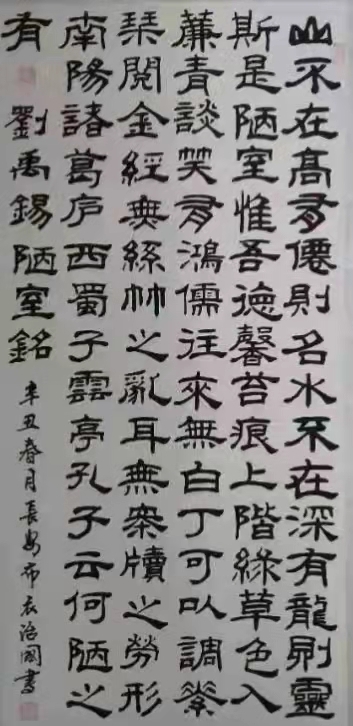 山不在高有僊則名水不在深有龍則靈
斯是陋室惟吾徳馨苔痕上階綠草色入
簾青談笑有鴻儒往來無白丁可以調素
琹閱金經無絲竹之亂耳無案牘之勞形
南陽諸葛庐西蜀子雲亭孔子云何陋之
有 劉禹錫陋室銘 辛丑春月長安布衣治國書